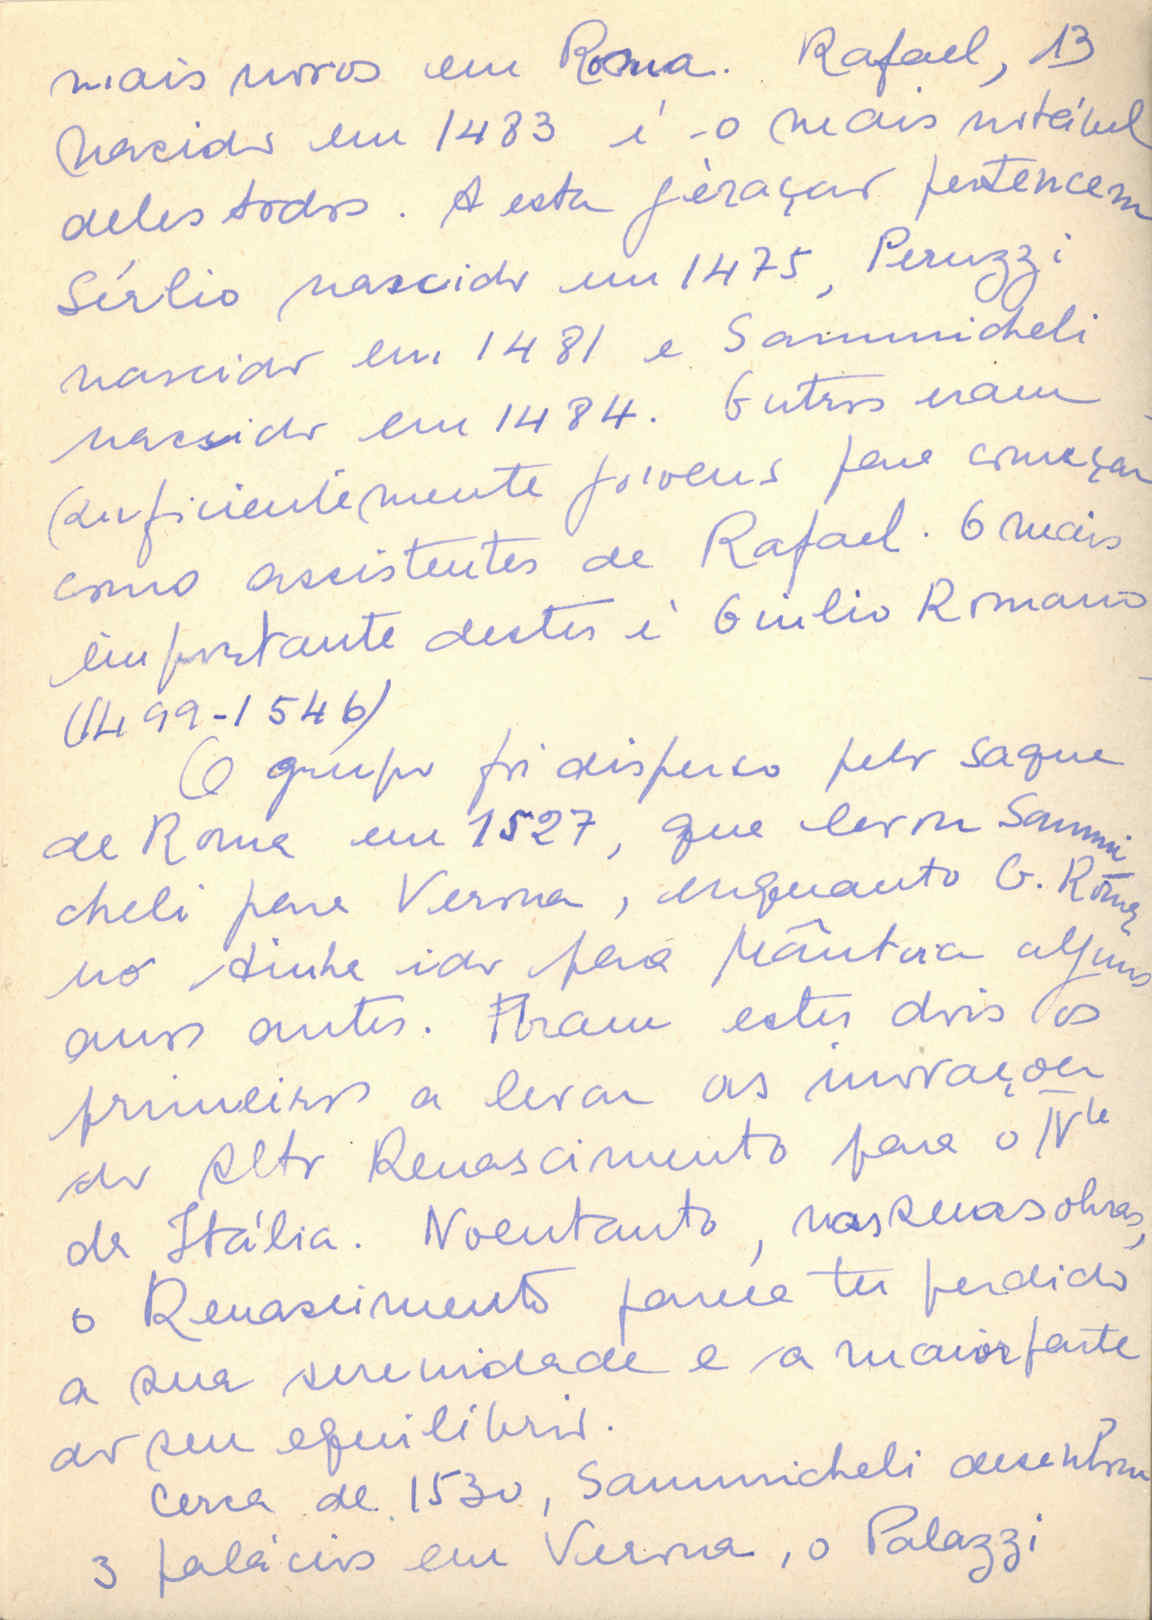 mais novos em Roma. Rafael, 13
nascido em 1483 é o mais notável
deles todos. A esta geração pertencem
Sérlio nascido em 1475, Peruzzi
nascido em 1481 e Sammicheli
nascido em 1484. Outros eram
suficientemente jovens para começar
como assistentes de Rafael. O mais
importante destes é Giulio Romano
(1499-1546)
O grupo foi disperso pelo saque
de Roma em 1527, que levou Sammi
cheli para Verona, enquanto G. Roma
no tinha ido para Mântova alguns
anos antes. Foram estes dois os
primeiros a levar as inovações
do Alto Renascimento para o Nte
da Itália. No entanto, nas suas obras,
o Renascimento parece ter perdido
a sua serenidade e a maior parte
do seu equilíbrio.
Cerca de 1530, Sammicheli desenhou
3 palácios em Verona, o Palazzi